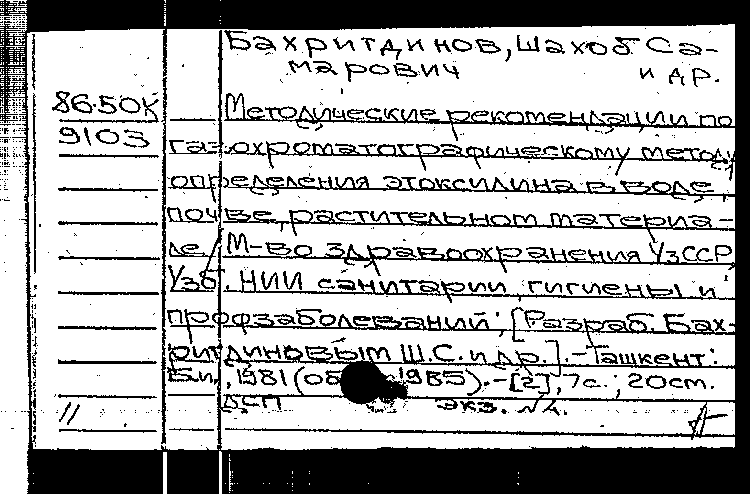 Бахритдинов, Шахоб Са-
марович и др.
86-50К Методические рекомендации по
9103 газохроматографическому методу
определения этоксилина в воде,
почве, растительном материа-
ле / М-во здравоохранения УзССР,
Узб. НИИ санитарии, гигиены и
профзаболеваний; [Разраб. Бах-
ритдиновым Ш.С. и др.]. - Ташкент:
Б.и., 1981 (об 1985). - [2], 7 с.; 20 см.
ДСП экз. №4.